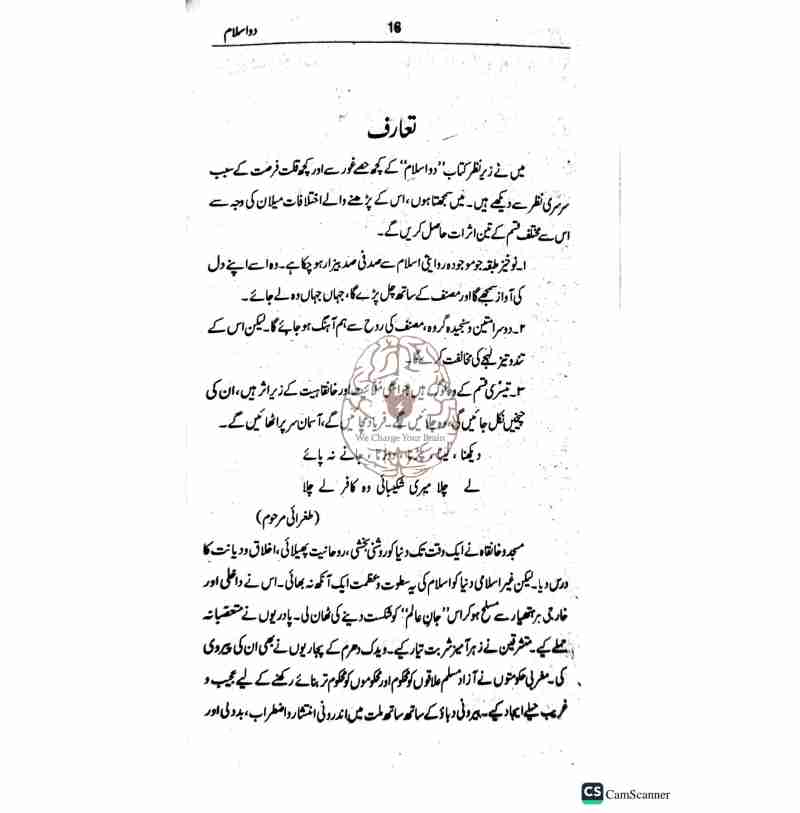 دو اسلام
16
تعارف
میں نے زیر نظر کتاب "دو اسلام" کے کچھ حصے غور سے اور کچھ قلت فرصت کے سبب
سرسری نظر سے دیکھے ہیں۔ میں سمجھتا ہوں، اس کے پڑھنے والے اختلافات میلان کی وجہ سے
اس سے مختلف قسم کے تین اثرات حاصل کریں گے۔
۱۔ نوخیز طبقہ جو موجودہ روایتی اسلام سے صدفی صد بیزار ہو چکا ہے۔ وہ اسے اپنے دل
کی آواز سمجھے گا اور مصنف کے ساتھ چل پڑے گا، جہاں جہاں وہ لے جائے۔
۲۔ دوسرا متین و سنجیدہ گروہ، مصنف کی روح سے ہم آہنگ ہو جائے گا۔ لیکن اس کے
تند و تیز لہجے کی مخالفت کرے گا۔
۳۔ تیسری قسم کے وہ لوگ ہیں جو ابھی ملائیت اور خانقاہیت کے زیر اثر ہیں، ان کی
چیخیں نکل جائیں گی، وہ چلائیں گے۔ فریاد مچائیں گے، آسمان سر پر اٹھائیں گے۔
We Charge Your Brain
دیکھنا، لینا، پکڑنا، دوڑنا، جانے نہ پائے
لے چلا میری شکیبائی وہ کافر لے چلا
(طغرائی مرحوم)
مسجد و خانقاہ نے ایک وقت تک دنیا کو روشنی بخشی، روحانیت پھیلائی، اخلاق و دیانت کا
درس دیا۔ لیکن غیر اسلامی دنیا کو اسلام کی یہ سطوت و عظمت ایک آنکھ نہ بھائی۔ اس نے داخلی اور
خارجی ہر ہتھیار سے مسلح ہو کر اس "جان عالم" کو شکست دینے کی ٹھان لی۔ پادریوں نے متعصبانہ
حملے کیے۔ مستشرقین نے زہر آمیز شربت تیار کیے۔ ویدک دھرم کے پجاریوں نے بھی ان کی پیروی
کی۔ مغربی حکومتوں نے آزاد مسلم علاقوں کو محکوم اور محکوموں کو محکوم تر بنائے رکھنے کے لیے عجیب و
غریب حیلے ایجاد کیے۔ بیرونی دباؤ کے ساتھ ساتھ ملت میں اندرونی انتشار و اضطراب، بددلی اور
CS CamScanner